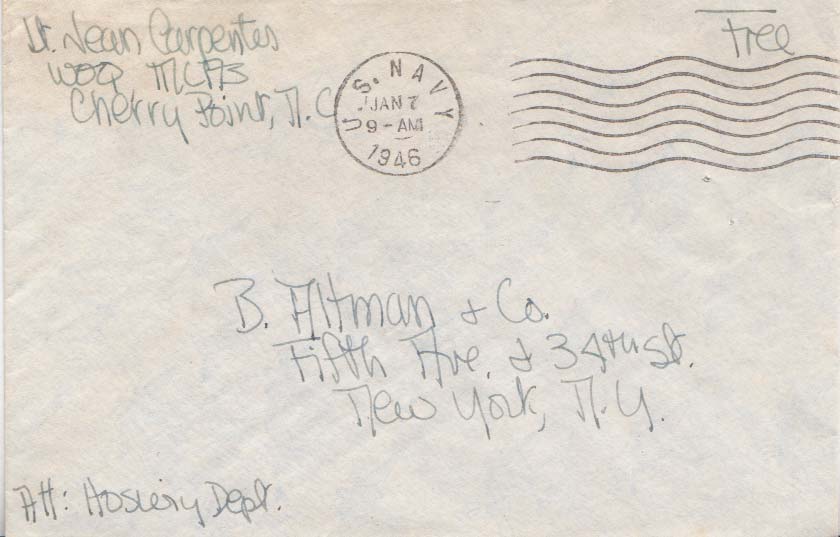 Lt. Jean Carpenter
WOQ MCAB
Cherry Point, N.C.
Free
U.S. NAVY
JAN 7
9-AM
1946
B. Altman & Co.
Fifth Ave. & 34th St.
New York, N.Y.
Att: Hosiery Dept.